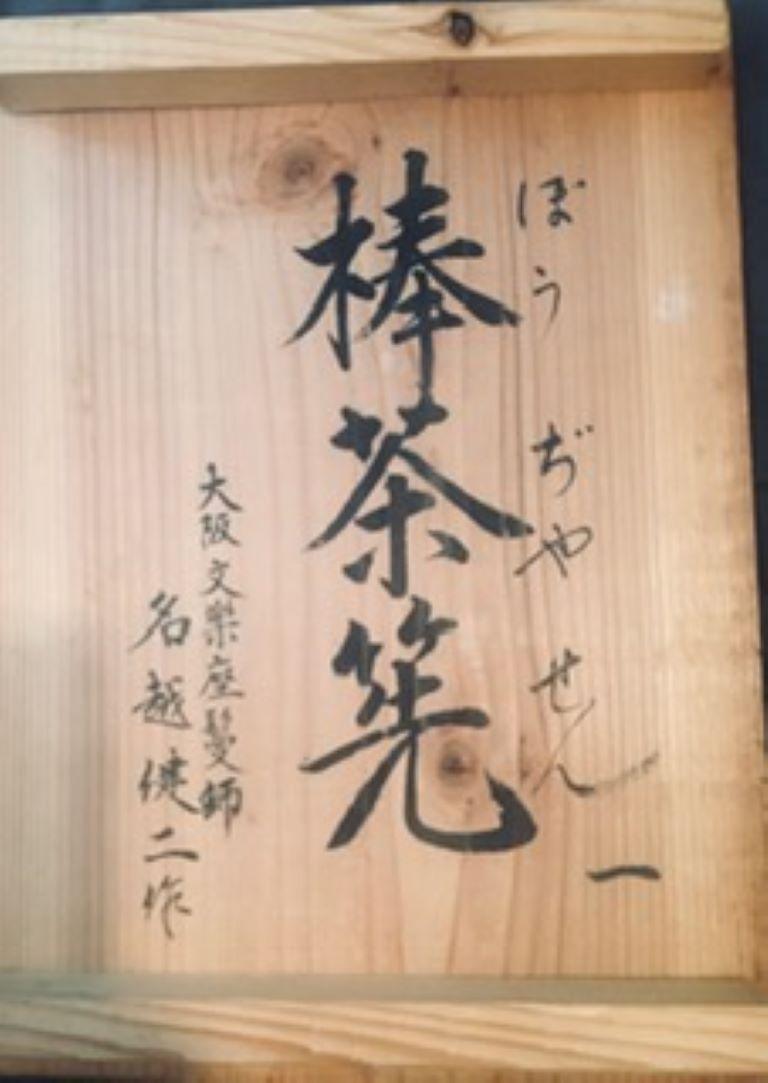 ぼうぢやせん
一
棒茶筅
大阪文楽座鬘師
名越健二作